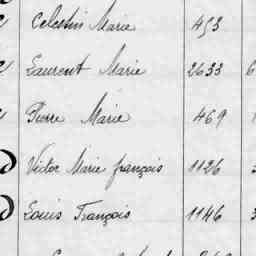 Celestin Marie 493
Laurent Marie 2633
Pierre Marie 469
Victor Marie françois 1126
Louis François 1146